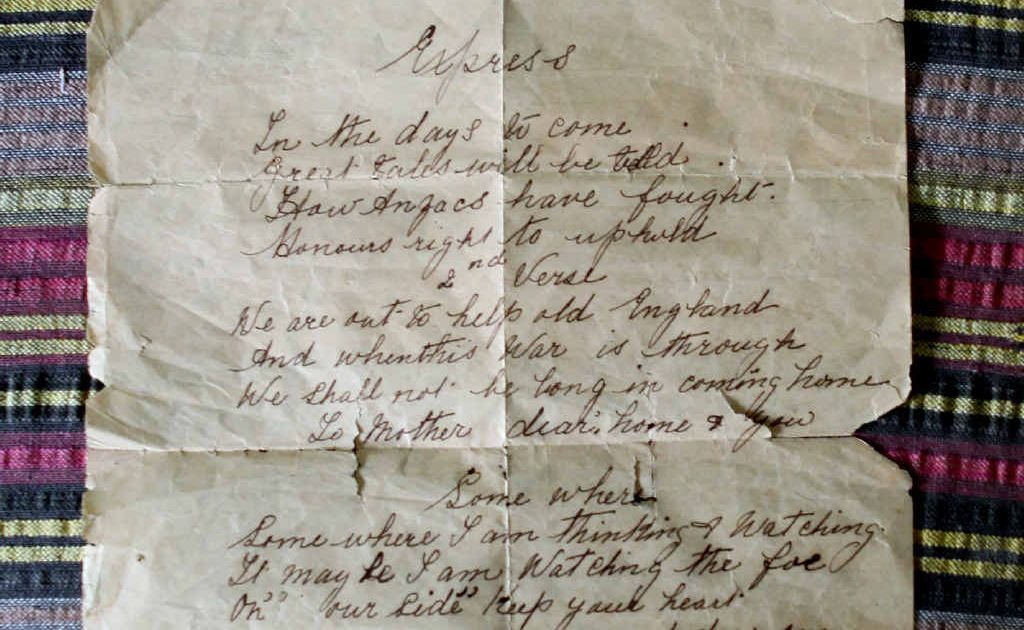 Express
In the days to come
Great tales will be told.
How Anzacs have fought.
Honours right to uphold
2nd Verse
We are out to help old England
And when this War is through
We shall not be long in coming home
To Mother dear, home & You
Some where
Some where I am thinking & Watching
It may be I am Watching the foe
On" our side" keep your heart